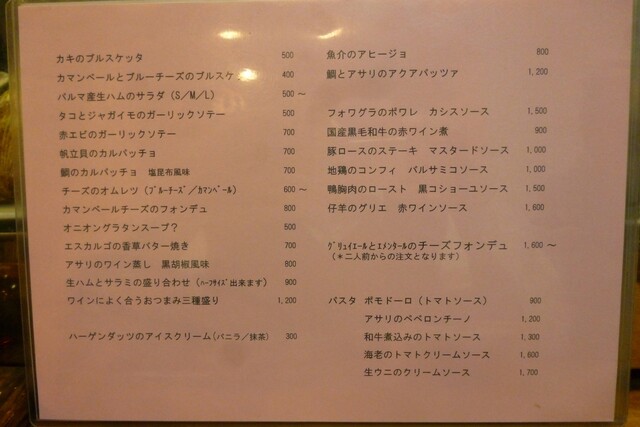 カキのブルスケッタ 500
カマンベールとブルーチーズのブルスケッタ 400
パルマ産生ハムのサラダ（S／M／L） 500 ～
タコとジャガイモのガーリックソテー 500
赤エビのガーリックソテー 700
帆立貝のカルパッチョ 700
鯛のカルパッチョ 塩昆布風味 700
チーズのオムレツ（ﾌﾞﾙｰﾁｰｽﾞ／ｶﾏﾝﾍﾞｰﾙ） 600 ～
カマンベールチーズのフォンデュ 800
オニオングラタンスープ？ 500
エスカルゴの香草バター焼き 700
アサリのワイン蒸し 黒胡椒風味 800
生ハムとサラミの盛り合わせ（ﾊｰﾌｻｲｽﾞ出来ます） 900
ワインによく合うおつまみ三種盛り 1,200
ハーゲンダッツのアイスクリーム（バニラ／抹茶） 300
魚介のアヒージョ 800
鯛とアサリのアクアパッツァ 1,200
フォワグラのポワレ カシスソース 1,500
国産黒毛和牛の赤ワイン煮 900
豚ロースのステーキ マスタードソース 1,000
地鶏のコンフィ バルサミコソース 1,000
鴨胸肉のロースト 黒コショーユソース 1,500
仔羊のグリエ 赤ワインソース 1,600
ｸﾞﾘｭｲｴｰﾙとｴﾒﾝﾀｰﾙのチーズフォンデュ 1,600 ～
（＊二人前からの注文となります）
パスタ ポモドーロ（トマトソース） 900
アサリのペペロンチーノ 1,200
和牛煮込みのトマトソース 1,300
海老のトマトクリームソース 1,600
生ウニのクリームソース 1,700